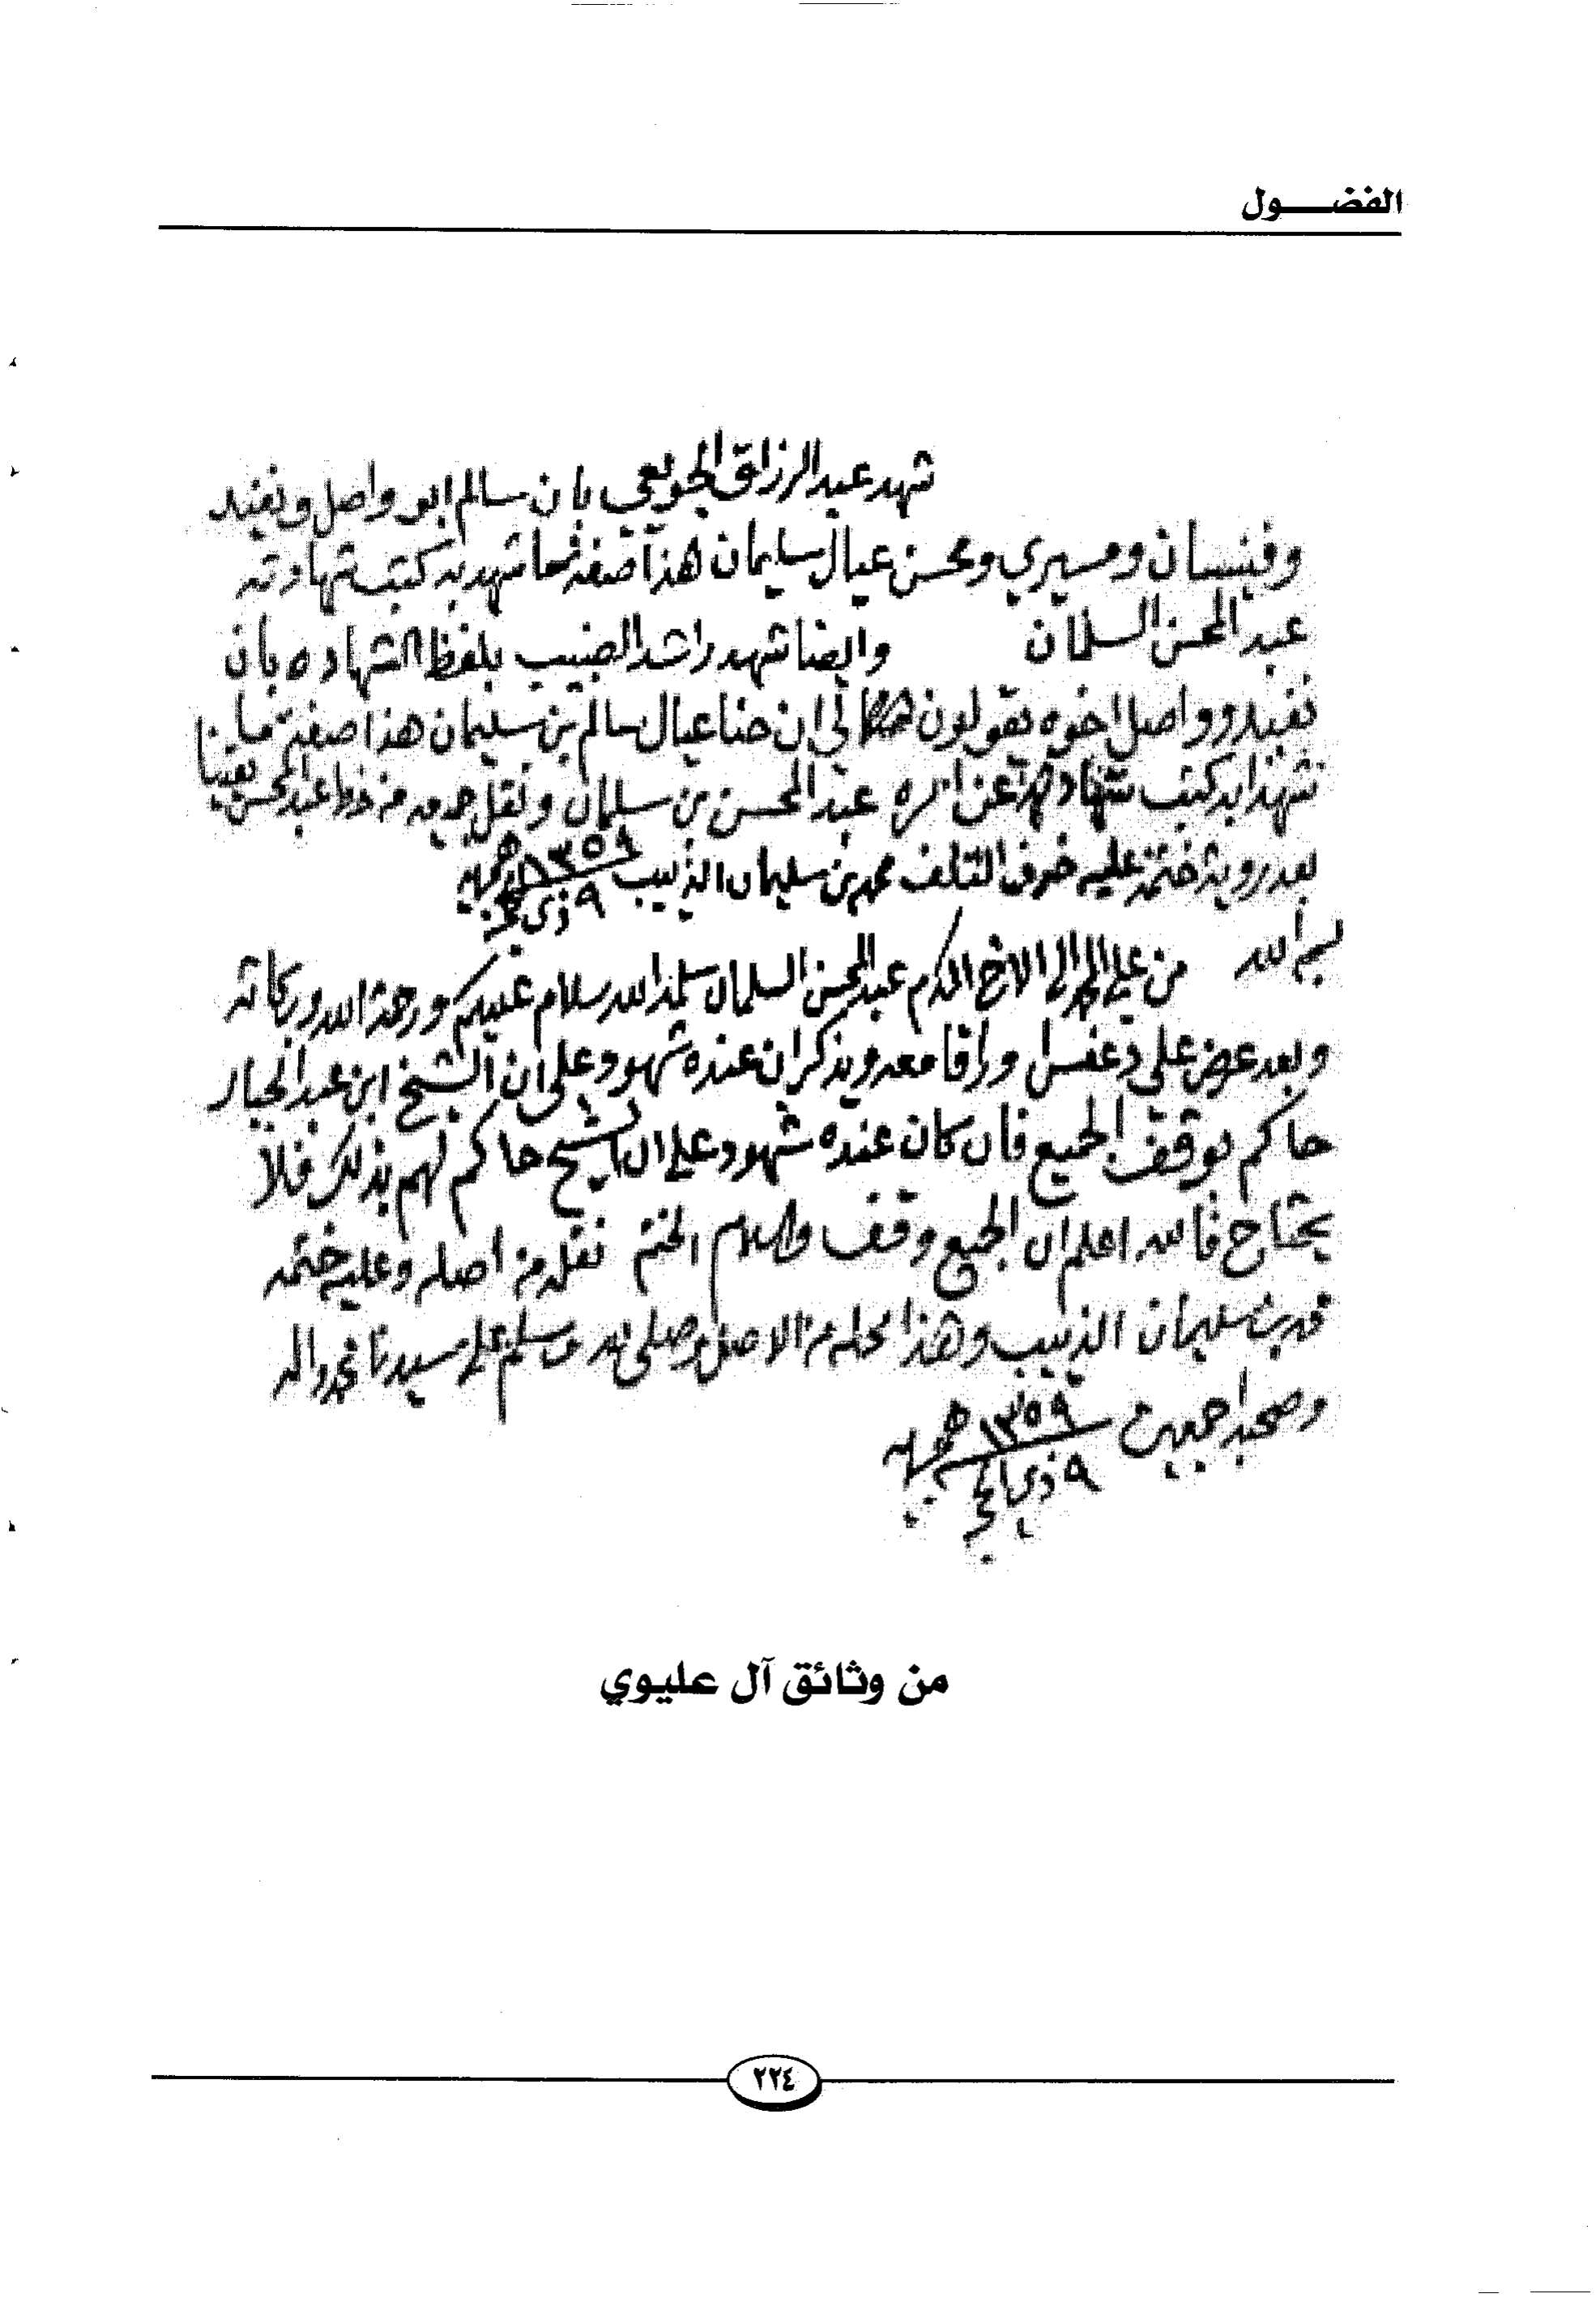 الفضــــول
شهد عبد الرزاق الجويعي بان سالم ابو واصل ونفيد
وفنيسان ومسيري ومحسن عيال سليمان هذا صفة ما شهد به كتب شهادته
عبد المحسن السلمان وايضا شهد راشد الضبيب بلفظ الشهاده بان
نفيد وواصل اخوه يقولون لي ان حنا عيال سالم بن سليمان هذا صفة ما
شهدا به كتب شهادتهما عن امره عبد المحسن بن سلمان ونقل من خط عبد المحسن يقينا
بعد روية ختمه عليه خوف التلف محمد بن سليمان الذييب ١٣٥٩ هجريه
٩ ذي
بسم الله من علي الى الاخ المكرم عبد المحسن السلمان سلمه الله سلام عليكم ورحمة الله وبركاته
وبعد عرض علي دعفس وراقا معه ويذكر ان عنده شهود على ان الشيخ ابن عبد الجبار
حاكم بوقف الجميع فان كان عنده شهود على ان الشيخ حاكم لهم بذلك فلا
يحتاج فالله اعلم ان الجميع وقف والسلام الختم نقله من اصله وعليه ختمه
محمد بن سليمان الذييب وهذا محله من الاصل وصلى الله وسلم على سيدنا محمد واله
وصحبه اجمعين ١٣٥٩ هجريه
٩ ذي الحج
من وثائق آل عليوي
٢٢٤